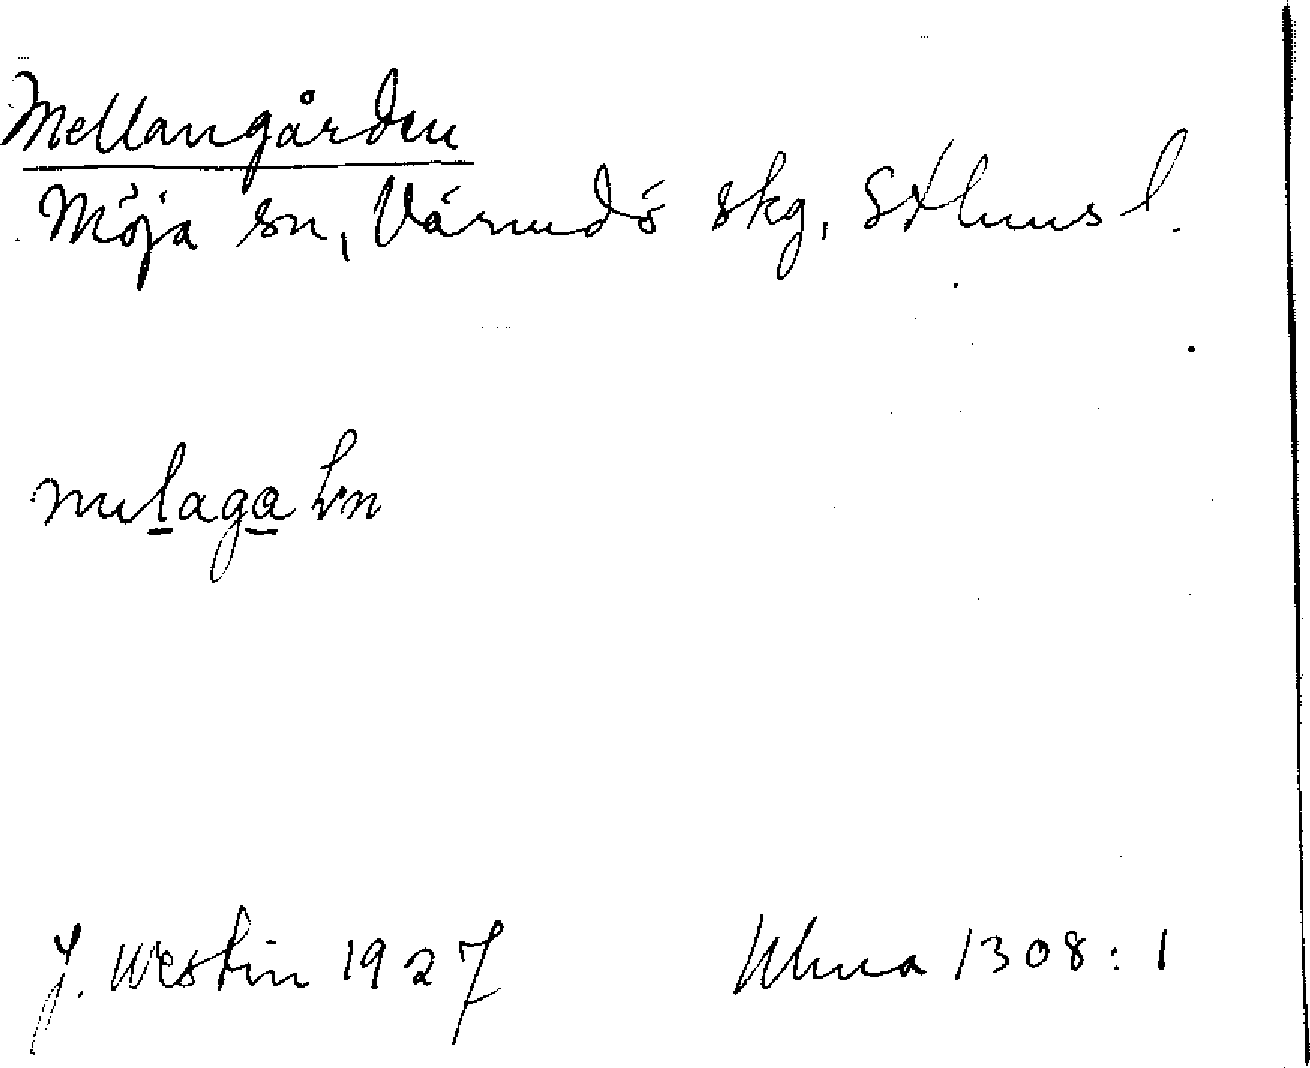 Mellangården
Möja sn, Värmdö skg, Sthms l.
J. Westin 1927 Ulma 1308:1